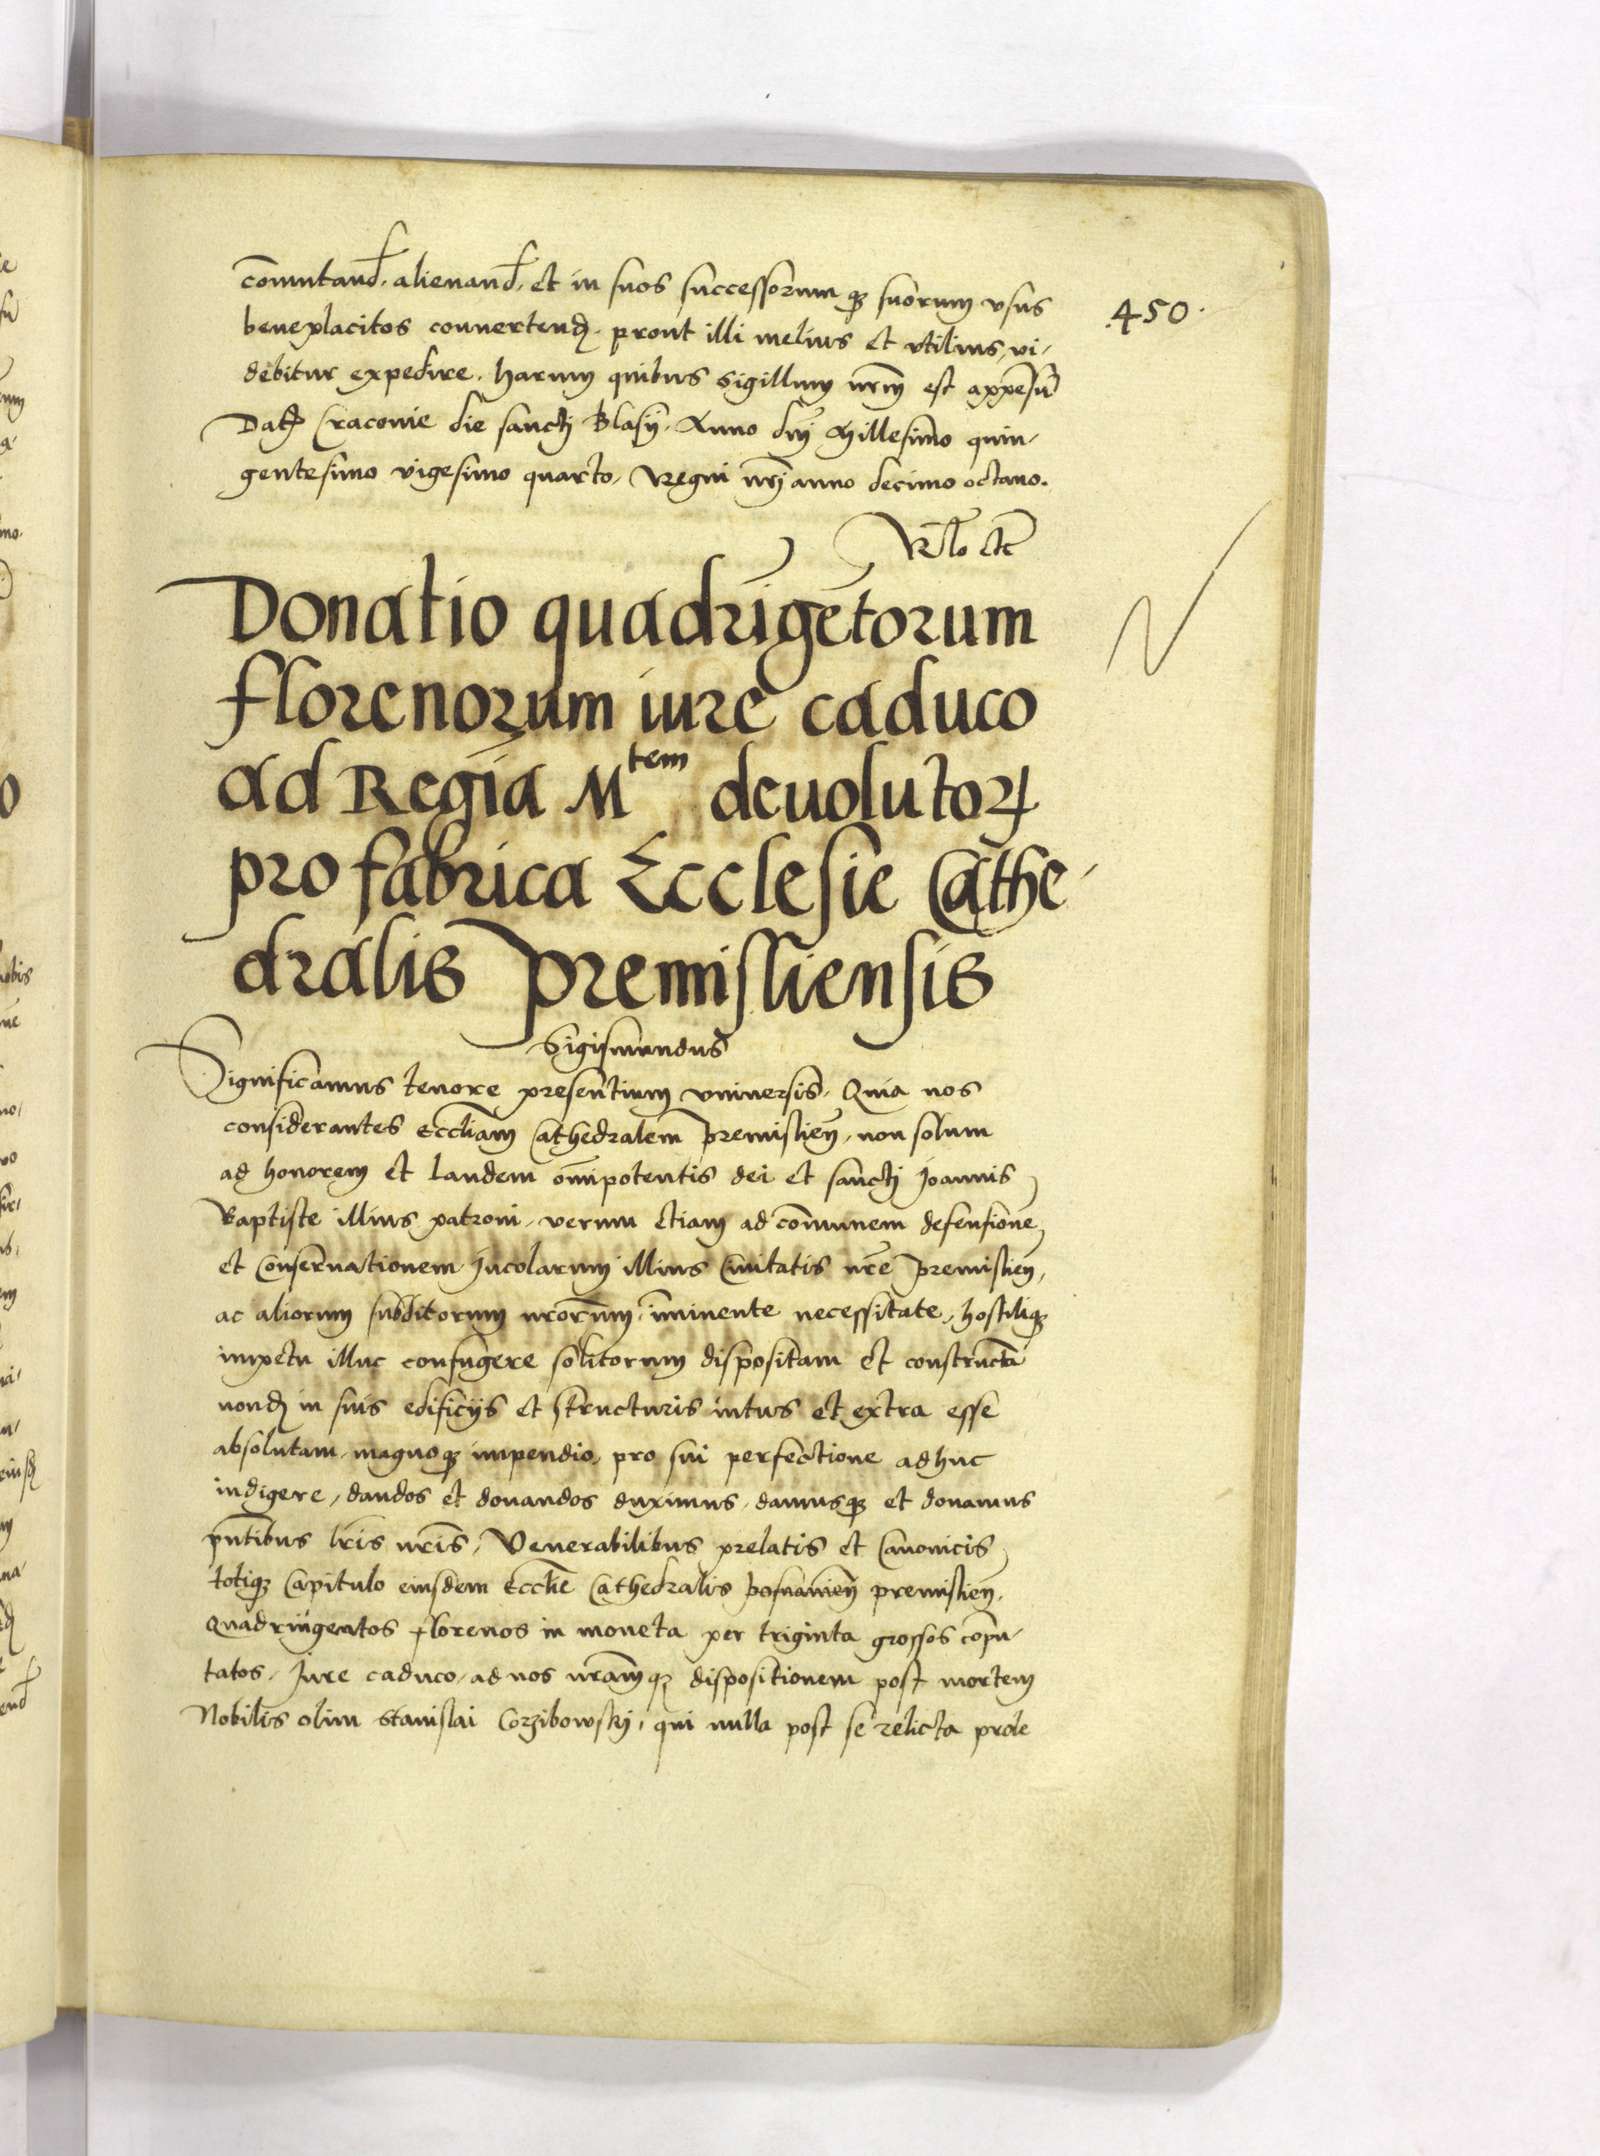 com̄utand. alienand. et in suos successorum qȝ suorum vsus
.450.
beneplacitos conuertend. prout illi melius et vtilius, vi-
debitur expedire. harum quibus sigillum nr̄m est appēsū
Dat. Cracouie die sancti Blasij. Anno dn̄j Millesimo quin-
gentesimo vigesimo quarto, Regni nr̄j anno decimo octauo.
Rlō etc
Donatio quadrigētorum
florenorum iure caduco
ad Regiā M^tem deuolutoꝝ
pro fabrica Ecclesie Cathe-
dralis Premisliensis
Sigismundus
Significamus tenore presentium vniuersis. Quia nos
considerantes Eccl̄iam Cathedralem Premislien̄, non solum
ad honorem et laudem om̄ipotentis dei et sancti Joannis
Baptiste illius patroni, verum etiam ad com̄unem defensionē
et Conseruationem Jncolarum illius Ciuitatis nr̄e Premislien̄,
ac aliorum subditorum nrōrum, im̄inente necessitate, hostiliqȝ
impetu illuc confugere solitorum dispositam et constructā
nond. in suis edificijs et structuris intus et extra esse
absolutam, magnoqȝ impendio, pro sui perfectione adhuc
indigere, dandos et donandos duximus, damusqȝ et donamus
pn̄tibus lr̄is nr̄is, Venerabilibus prelatis et Canonicis
totiqȝ Capitulo eiusdem Eccl̄ie Cathedralis posnanien̄ premislien̄.
Quadringentos florenos in moneta per triginta grossos cōpu-
tatos, Jure caduco, ad nos nr̄amqȝ dispositionem post mortem
Nobilis olim Stanislai Corzibowskj, qui nulla post se relicta prole